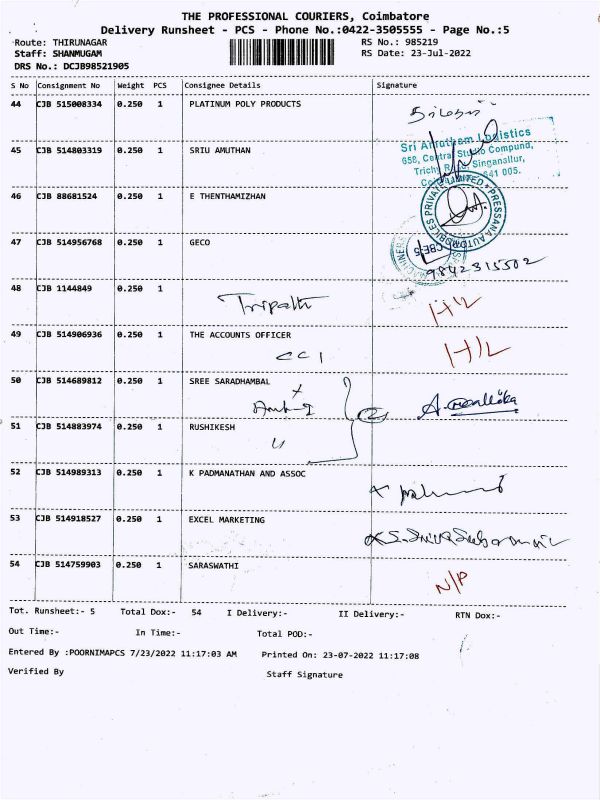 THE PROFESSIONAL COURIERS, Coimbatore
Delivery Runsheet - PCS - Phone No.:0422-3505555 - Page No.:5
Route: THIRUNAGAR RS No.: 985219
Staff: SHANMUGAM RS Date: 23-Jul-2022
DRS No.: DCJB98521905
S No Consignment No Weight PCS Consignee Details Signature
44 CJB 515008334 0.250 1 PLATINUM POLY PRODUCTS
Sri Amutham Logistics
658, Central Studio Compund,
Trichy Road, Singanallur,
641 005.
45 CJB 514803319 0.250 1 SRIU AMUTHAN
46 CJB 88681524 0.250 1 E THENTHAMIZHAN
PRESSANA AUTOMOBILES PRIVATE LIMITED
CBE-5
47 CJB 514956768 0.250 1 GECO
9842315502
48 CJB 1144849 0.250 1
Tripath H/L
49 CJB 514906936 0.250 1 THE ACCOUNTS OFFICER
CC1 H/L
50 CJB 514689812 0.250 1 SREE SARADHAMBAL
A. Mallika
51 CJB 514883974 0.250 1 RUSHIKESH
52 CJB 514989313 0.250 1 K PADMANATHAN AND ASSOC
53 CJB 514918527 0.250 1 EXCEL MARKETING
54 CJB 514759903 0.250 1 SARASWATHI
N/P
Tot. Runsheet:- 5 Total Dox:- 54 I Delivery:- II Delivery:- RTN Dox:-
Out Time:- In Time:- Total POD:-
Entered By :POORNIMAPCS 7/23/2022 11:17:03 AM Printed On: 23-07-2022 11:17:08
Verified By Staff Signature